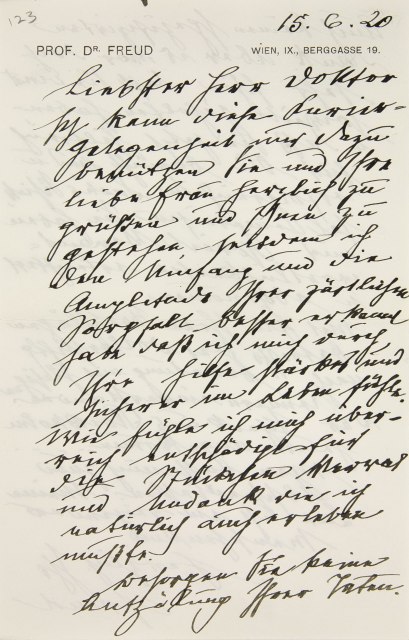 123
15.6.20
PROF. DR. FREUD WIEN, IX., BERGGASSE 19.
Liebster Herr Doktor
Ich kann diese Kurier-
gelegenheit nur dazu
benützen Sie und Ihre
liebe Frau herzlich zu
grüßen und Ihnen zu
gestehen, seitdem ich
den Umfang und die
Amplitude Ihrer zärtlichen
Sorgfalt besser erkannt
habe daß ich mich durch
Ihre Hilfe stärker und
sicherer im Leben fühle.
Wie fühle ich mich über-
reich entschädigt für
die Stückchen Verrat
und Undank die ich
natürlich auch erleben
mußte.
Besorgen Sie keine
Aufzälung Ihrer Taten.